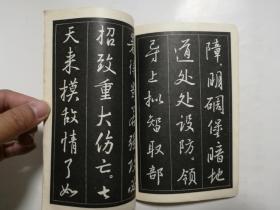 障,明碉保暗地
道处处设防。领
导上拟智取部
招致重大伤亡。七
天来摸敌情了如